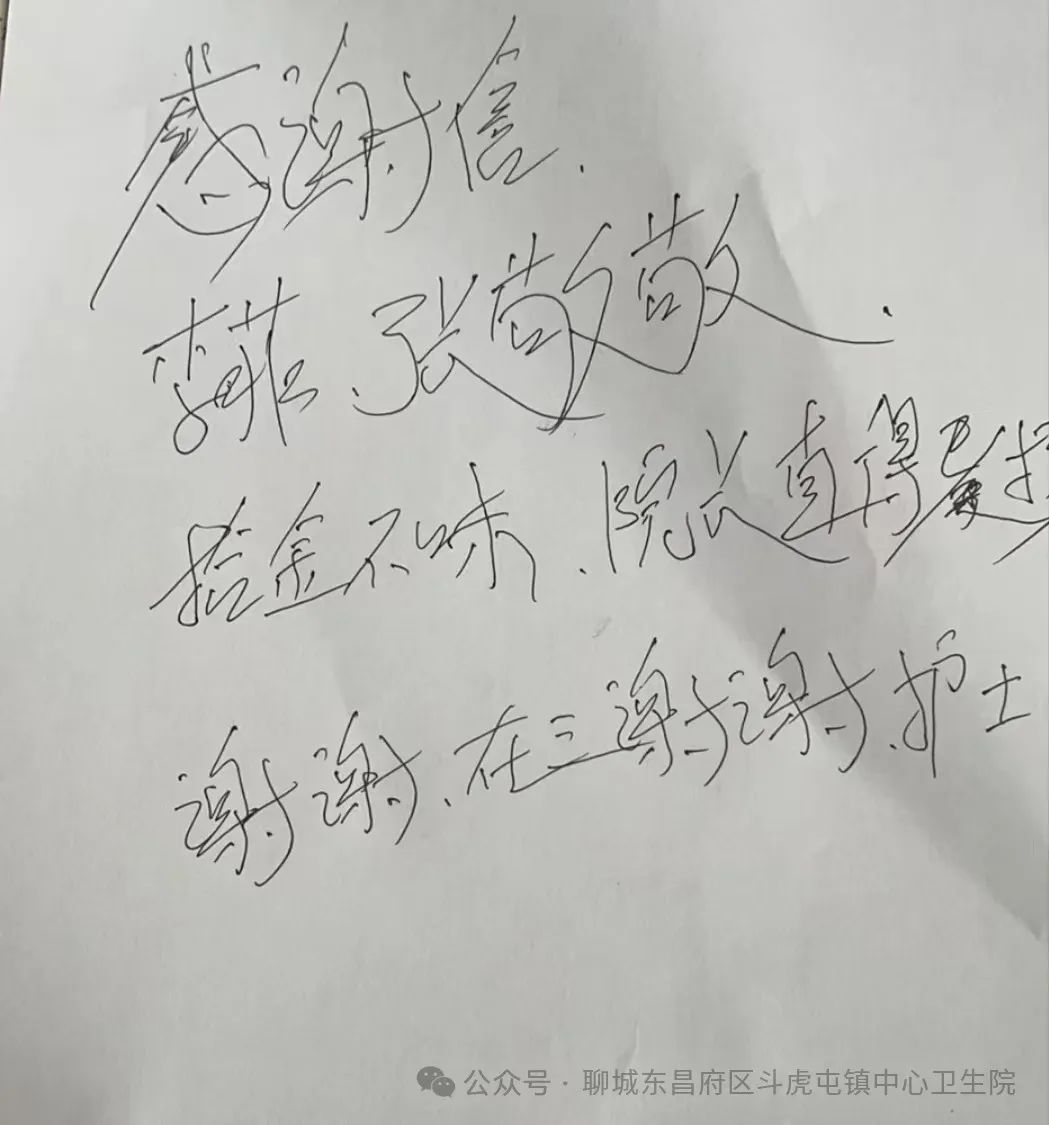 感谢信.
李菲、张敬敬.
拾金不昧、院长直得表扬
谢谢、在三谢谢谢谢、护士
公众号·聊城东昌府区斗虎屯镇中心卫生院